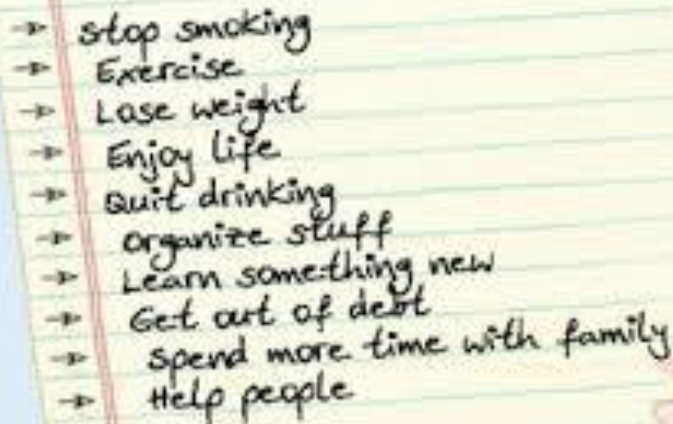 stop smoking
Exercise
Lose weight
Enjoy life
Quit drinking
organize stuff
Learn something new
Get out of debt
spend more time with family
Help people